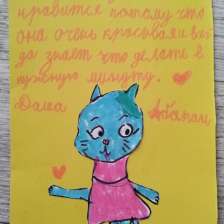 нравится потому что
она очень красивая и всег
да знает что делать в
нужную минуту.
Даша